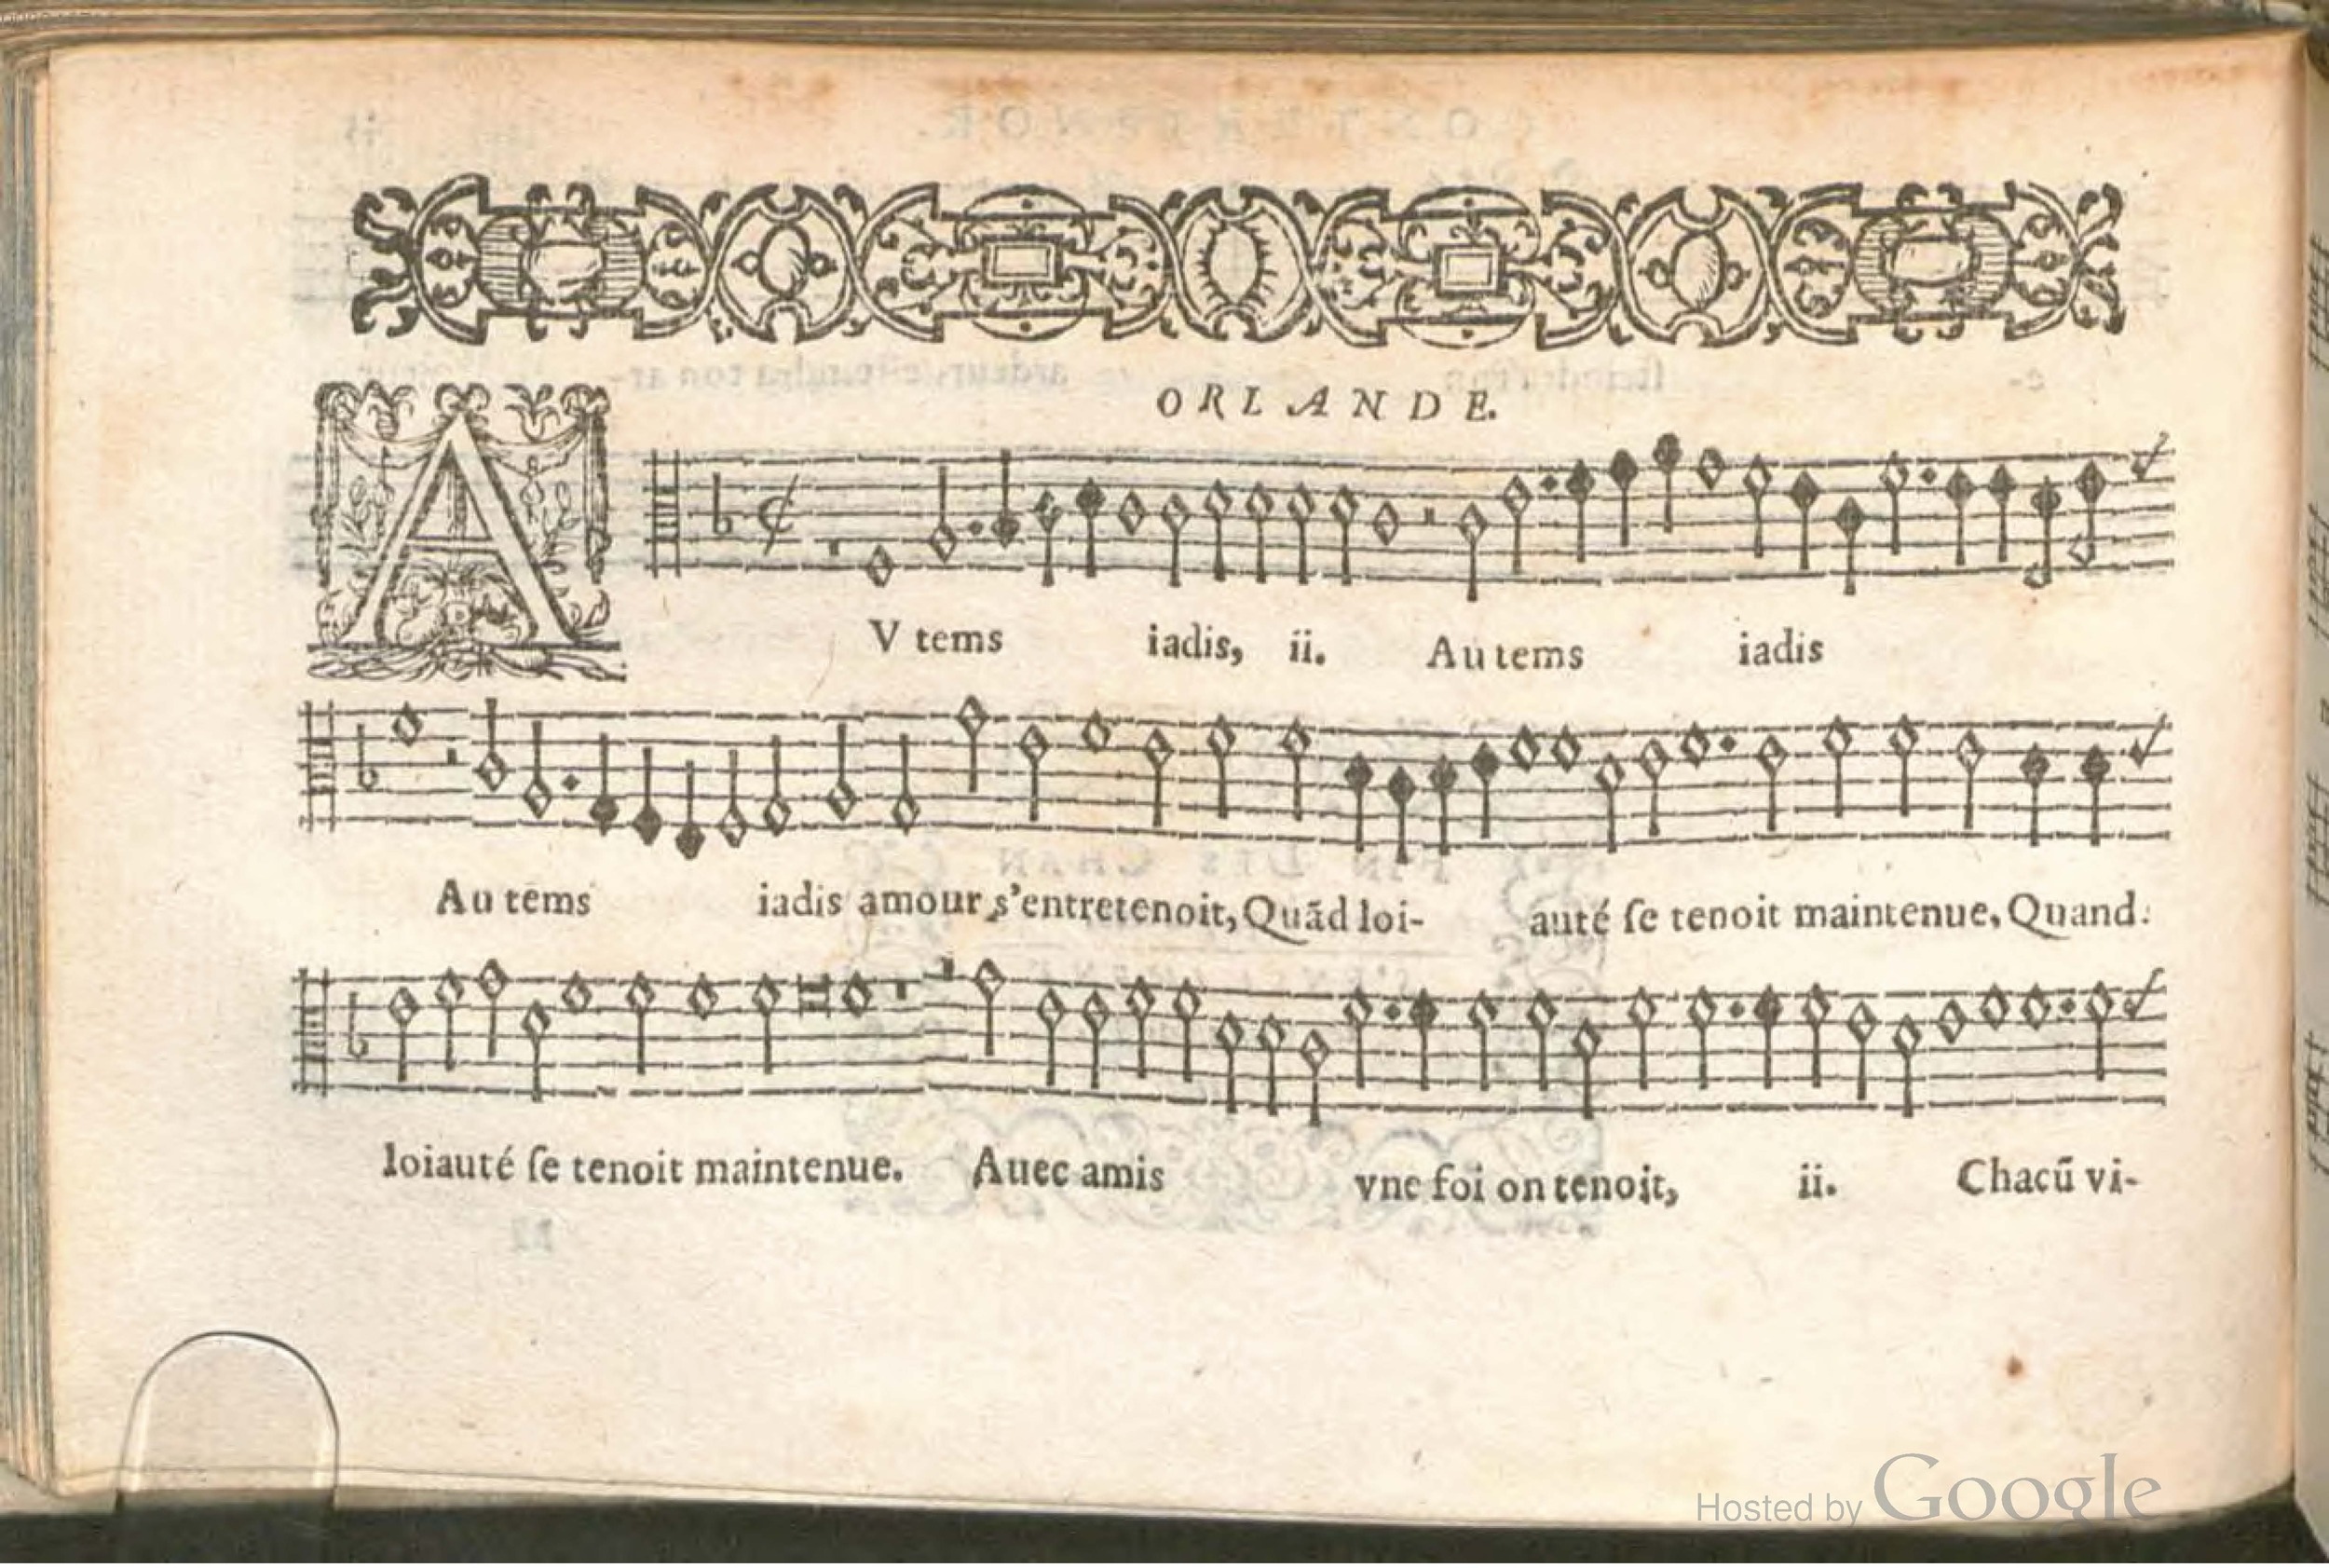 ORLANDE.
AV tems iadis, ii. Au tems iadis
Au tēms iadis amour s'entretenoit, Quād loi-auté ſe tenoit maintenue, Quand.
loiauté ſe tenoit maintenue. Auec amis vne foi on tenoit, ii. Chacū vi-
Hosted by Google